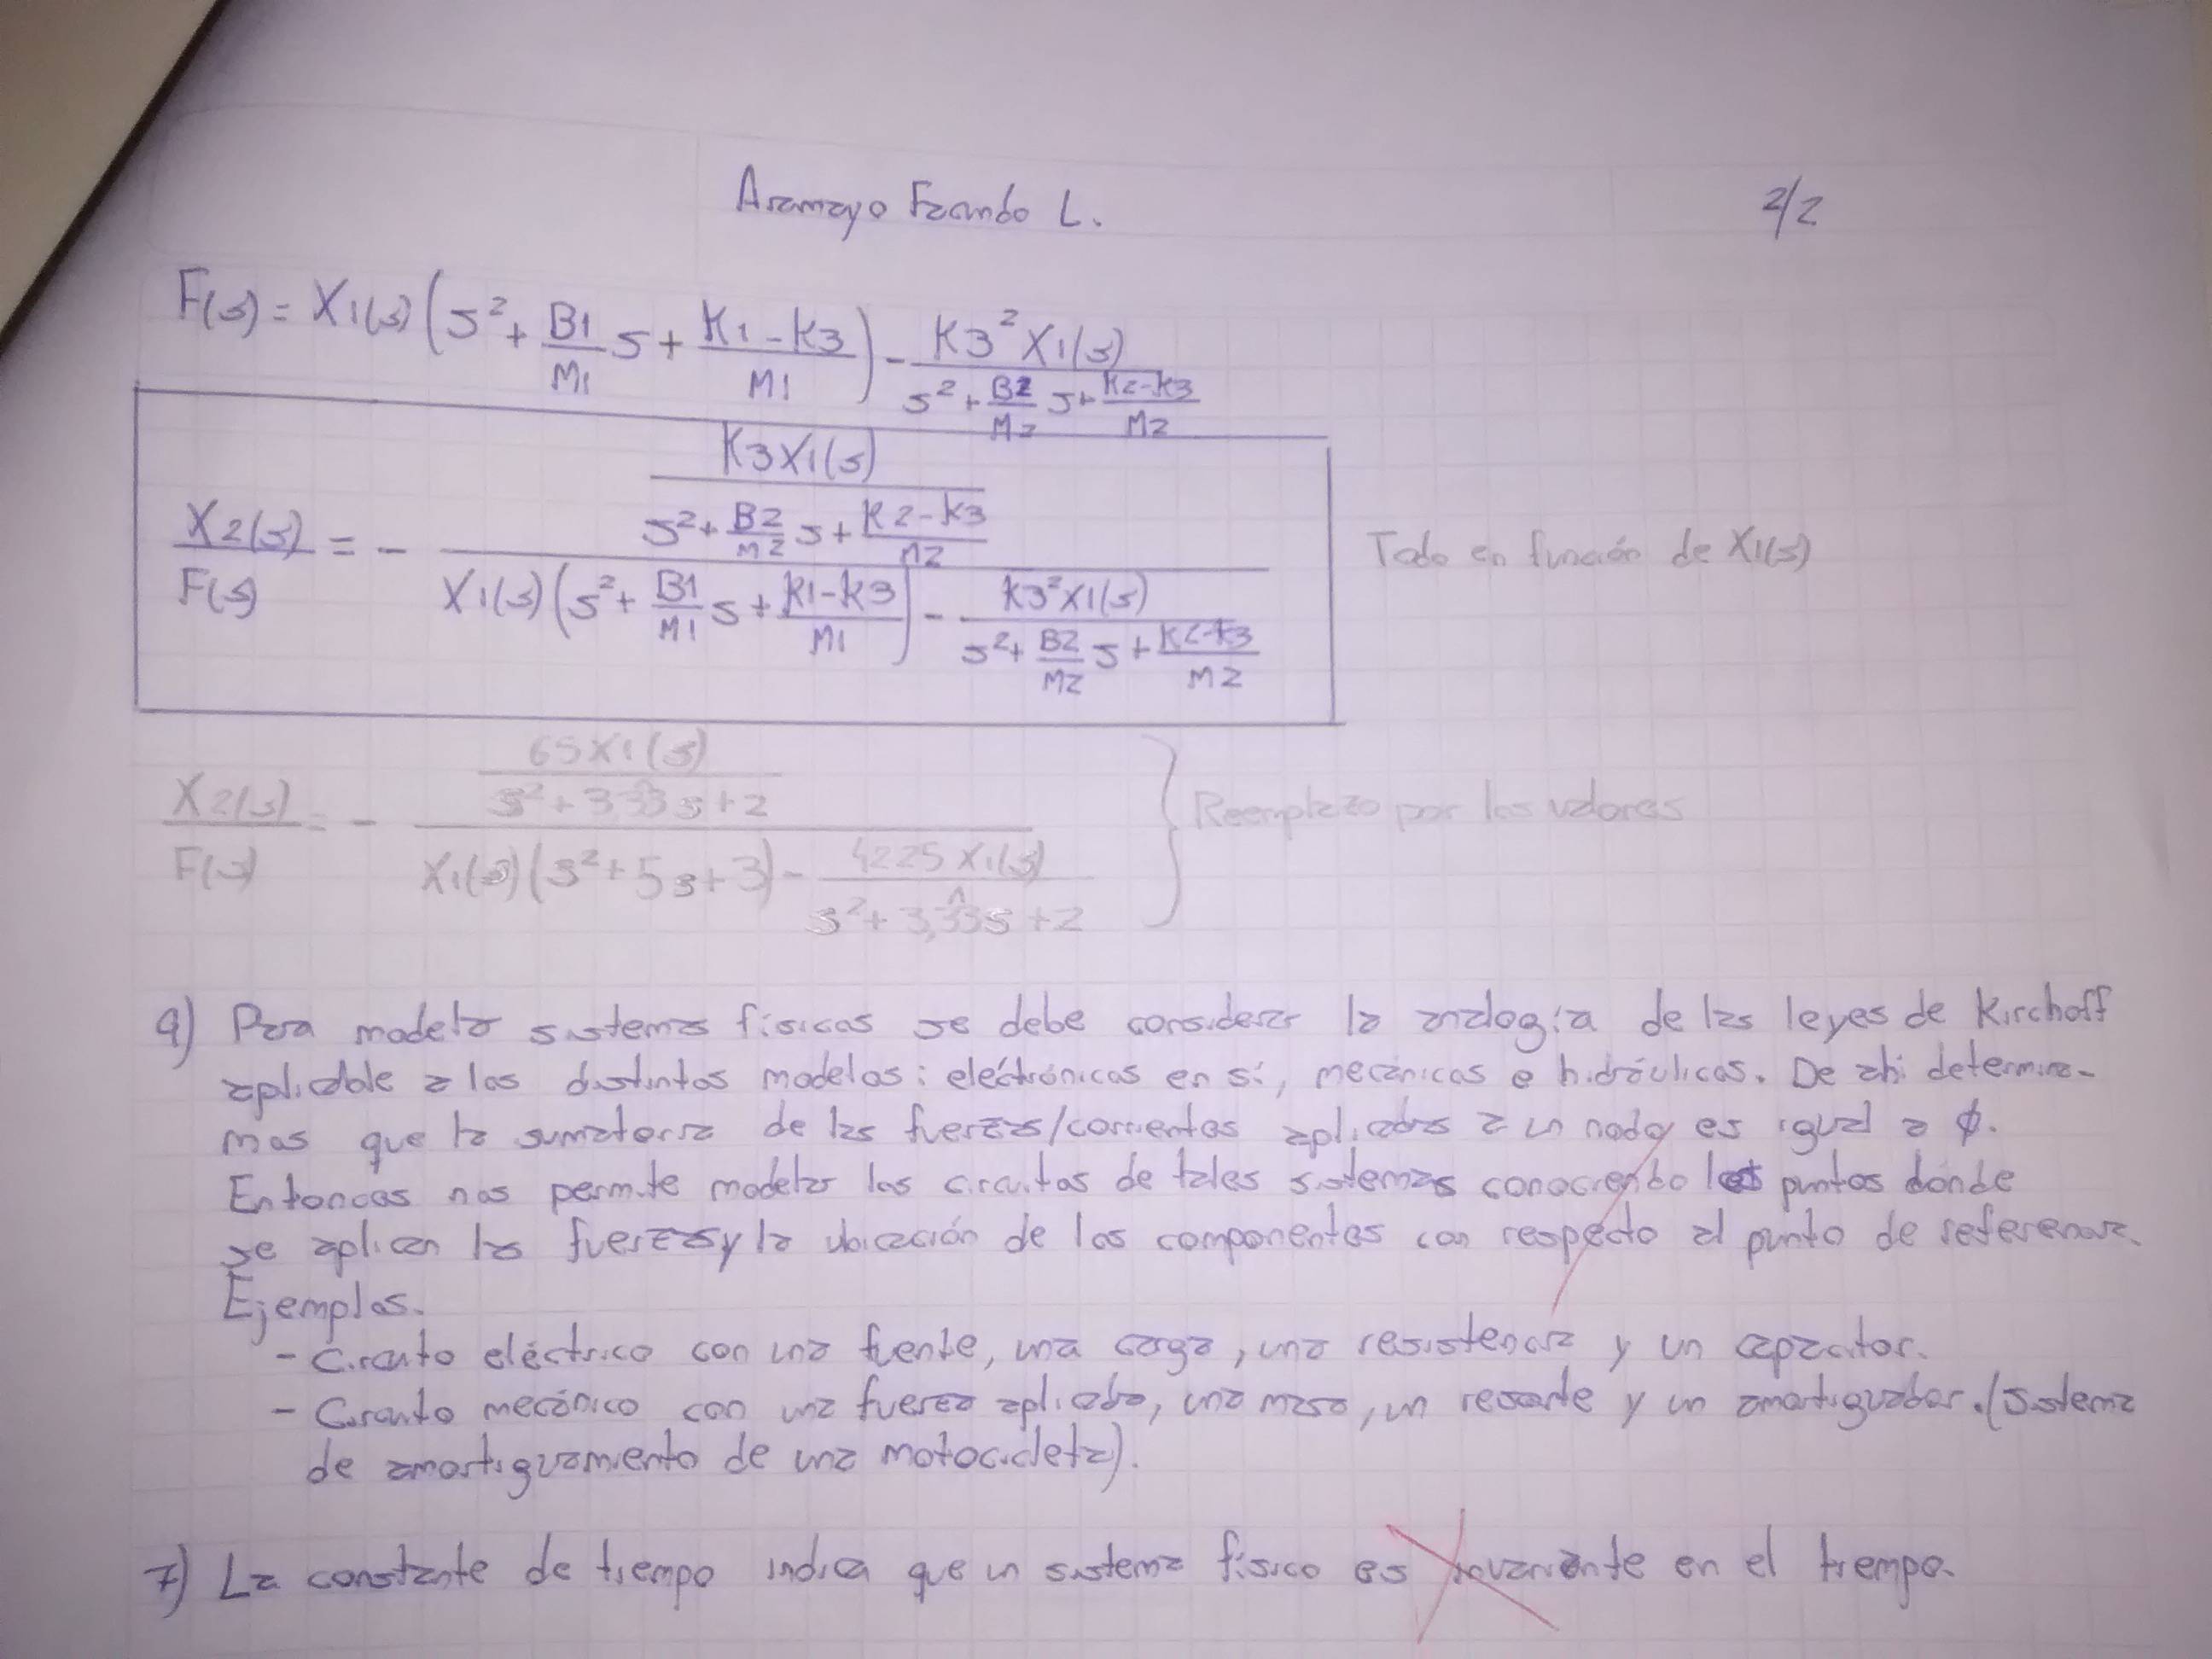 Aramayo Facundo L. 2/2
F(s) = X1(s) (s² + B1/M1 s + K1-K3/M1) - K3² X1(s) / s² + B2/M2 s + K2-K3/M2
X2(s)/F(s) = - K3X1(s) / s² + B2/M2 s + K2-K3/M2 / X1(s) (s² + B1/M1 s + K1-K3/M1) - K3²X1(s) / s² + B2/M2 s + K2-K3/M2 Todo en función de X1(s)
X2(s)/F(s) = - 65X1(s) / s² + 3,33s + 2 / X1(s) (s² + 5s + 3) - 4225 X1(s) / s² + 3,33s + 2 } Reemplazo por los valores
9) Para modelar sistemas físicos se debe considerar la analogía de las leyes de Kirchoff
aplicable a los distintos modelos: eléctrónicos en sí, mecánicos e hidráulicos. De ahi determina-
mos que la sumatoria de las fuerzas/corrientes aplicadas a un nodo es igual a ϕ.
Entonces nos permite modelar los circuitos de tales sistemas conociendo los puntos donde
se aplican las fuerzas y la ubicación de los componentes con respecto al punto de referencia.
Ejemplos.
- Circuito eléctrico con una fuente, una carga, una resistencia y un capacitor.
- Circuito mecánico con una fuerza aplicada, una masa, un resorte y un amortiguador. (Sistema
de amortiguamiento de una motocicleta).
7) La constante de tiempo indica que un sistema físico es invariante en el tiempo.